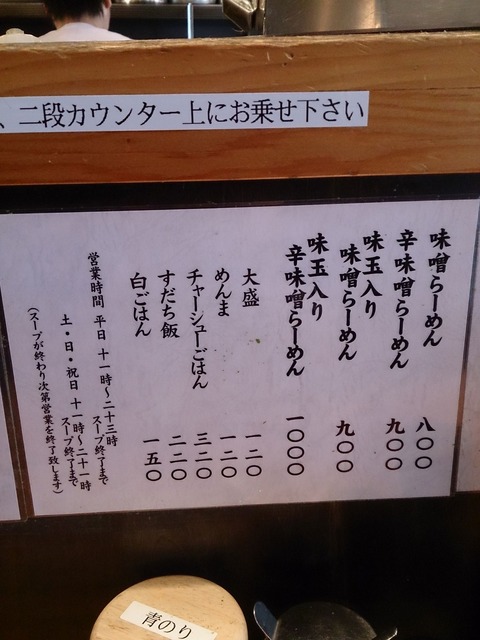 、二段カウンター上にお乗せ下さい
味噌らーめん 八〇〇
辛味噌らーめん 九〇〇
味玉入り
味噌らーめん 九〇〇
味玉入り
辛味噌らーめん 一〇〇〇
大盛 一二〇
めんま 一二〇
チャーシューごはん 三二〇
すだち飯 二二〇
白ごはん 一五〇
営業時間 平日 十一時〜二十三時
スープ終了まで
土・日・祝日 十一時〜二十一時
スープ終了まで
（スープが終わり次第営業を終了致します）
青のり